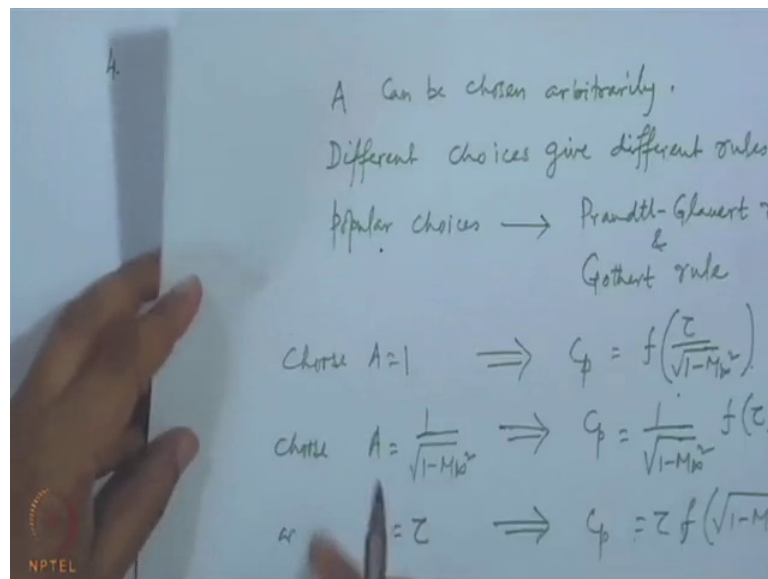 4.
A can be chosen arbitrarily.
Different choices give different rules
Popular choices → Prandtl-Glauert
&
Gothert rule
Choose A = 1 ⟹ Cp = f(τ/√(1-M∞²)).
Choose A = 1/√(1-M∞²) ⟹ Cp = 1/√(1-M∞²) f(τ
or = τ ⟹ Cp = τ f(√(1-M
NPTEL